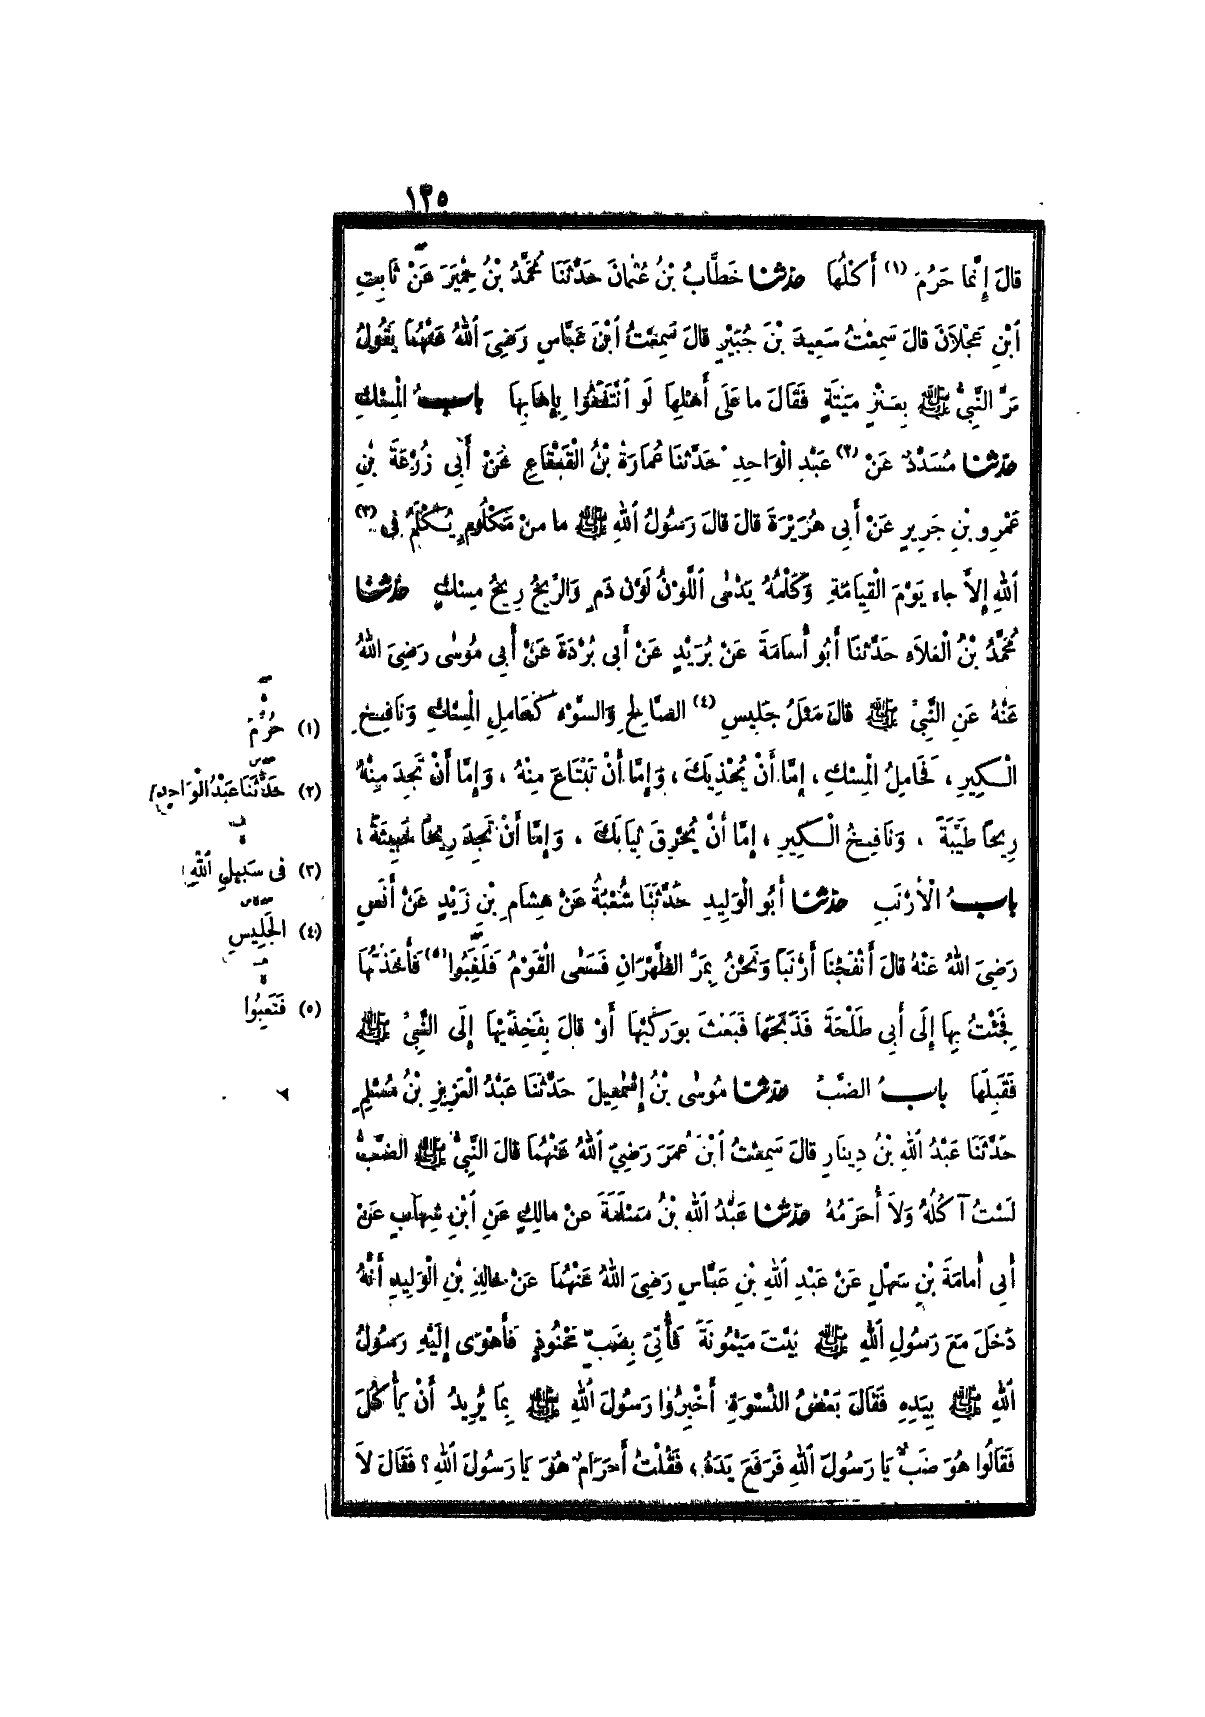 ١٢٥
قَالَ إِنَّمَا حَرُمَ (١) أَكْلُهَا حدثنا خَطَّابُ بْنُ عُثْمَانَ حَدَّثَنَا مُحَمَّدُ بْنُ حِمْيَرَ عَنْ ثَابِتِ
ابْنِ عَجْلَانَ قَالَ سَمِعْتُ سَعِيدَ بْنَ جُبَيْرٍ قَالَ سَمِعْتُ ابْنَ عَبَّاسٍ رَضِيَ اللهُ عَنْهُمَا يَقُولُ
مَرَّ النَّبِيُّ ﷺ بِعَنْزٍ مَيْتَةٍ فَقَالَ مَا عَلَى أَهْلِهَا لَوِ انْتَفَعُوا بِإِهَابِهَا باب الْمِسْكِ
حدثنا مُسَدَّدٌ عَنْ (٢) عَبْدِ الْوَاحِدِ حَدَّثَنَا عُمَارَةُ بْنُ الْقَعْقَاعِ عَنْ أَبِي زُرْعَةَ بْنِ
عَمْرِو بْنِ جَرِيرٍ عَنْ أَبِي هُرَيْرَةَ قَالَ قَالَ رَسُولُ اللهِ ﷺ مَا مِنْ مَكْلُومٍ يُكْلَمُ فِي (٣)
اللهِ إِلَّا جَاءَ يَوْمَ الْقِيَامَةِ وَكَلْمُهُ يَدْمَى اللَّوْنُ لَوْنُ دَمٍ وَالرِّيحُ رِيحُ مِسْكٍ حدثنا
مُحَمَّدُ بْنُ الْعَلَاءِ حَدَّثَنَا أَبُو أُسَامَةَ عَنْ بُرَيْدٍ عَنْ أَبِي بُرْدَةَ عَنْ أَبِي مُوسَى رَضِيَ اللهُ
عَنْهُ عَنِ النَّبِيِّ ﷺ قَالَ مَثَلُ جَلِيسِ (٤) الصَّالِحِ وَالسَّوْءِ كَحَامِلِ الْمِسْكِ وَنَافِخِ
الْكِيرِ ، فَحَامِلُ الْمِسْكِ ، إِمَّا أَنْ يُحْذِيَكَ ، وَإِمَّا أَنْ تَبْتَاعَ مِنْهُ ، وَإِمَّا أَنْ تَجِدَ مِنْهُ
رِيحًا طَيِّبَةً ، وَنَافِخُ الْكِيرِ ، إِمَّا أَنْ يُحْرِقَ ثِيَابَكَ ، وَإِمَّا أَنْ تَجِدَ رِيحًا خَبِيثَةً ،
باب الْأَرْنَبِ حدثنا أَبُو الْوَلِيدِ حَدَّثَنَا شُعْبَةُ عَنْ هِشَامِ بْنِ زَيْدٍ عَنْ أَنَسٍ
رَضِيَ اللهُ عَنْهُ قَالَ أَنْفَجْنَا أَرْنَبًا وَنَحْنُ بِمَرِّ الظَّهْرَانِ فَسَعَى الْقَوْمُ فَلَغِبُوا (٥) فَأَخَذْتُهَا
فَجِئْتُ بِهَا إِلَى أَبِي طَلْحَةَ فَذَبَحَهَا فَبَعَثَ بِوَرِكَيْهَا أَوْ قَالَ بِفَخِذَيْهَا إِلَى النَّبِيِّ ﷺ
فَقَبِلَهَا باب الضَّبِّ حدثنا مُوسَى بْنُ إِسْمٰعِيلَ حَدَّثَنَا عَبْدُ الْعَزِيزِ بْنُ مُسْلِمٍ
حَدَّثَنَا عَبْدُ اللهِ بْنُ دِينَارٍ قَالَ سَمِعْتُ ابْنَ عُمَرَ رَضِيَ اللهُ عَنْهُمَا قَالَ النَّبِيُّ ﷺ الضَّبُّ
لَسْتُ آكُلُهُ وَلَا أُحَرِّمُهُ حدثنا عَبْدُ اللهِ بْنُ مَسْلَمَةَ عَنْ مَالِكٍ عَنِ ابْنِ شِهَابٍ عَنْ
أَبِي أُمَامَةَ بْنِ سَهْلٍ عَنْ عَبْدِ اللهِ بْنِ عَبَّاسٍ رَضِيَ اللهُ عَنْهُمَا عَنْ خَالِدِ بْنِ الْوَلِيدِ أَنَّهُ
دَخَلَ مَعَ رَسُولِ اللهِ ﷺ بَيْتَ مَيْمُونَةَ فَأُتِيَ بِضَبٍّ مَحْنُوذٍ فَأَهْوَى إِلَيْهِ رَسُولُ
اللهِ ﷺ بِيَدِهِ فَقَالَ بَعْضُ النِّسْوَةِ أَخْبِرُوا رَسُولَ اللهِ ﷺ بِمَا يُرِيدُ أَنْ يَأْكُلَ
فَقَالُوا هُوَ ضَبٌّ يَا رَسُولَ اللهِ فَرَفَعَ يَدَهُ ، فَقُلْتُ أَحَرَامٌ هُوَ يَا رَسُولَ اللهِ ؟ فَقَالَ لَا
(١) حُرِّمَ
(٢) حَدَّثَنَا عَبْدُ الْوَاحِدِ
(٣) فِي سَبِيلِ اللهِ
(٤) الْجَلِيسِ
(٥) فَتَعِبُوا